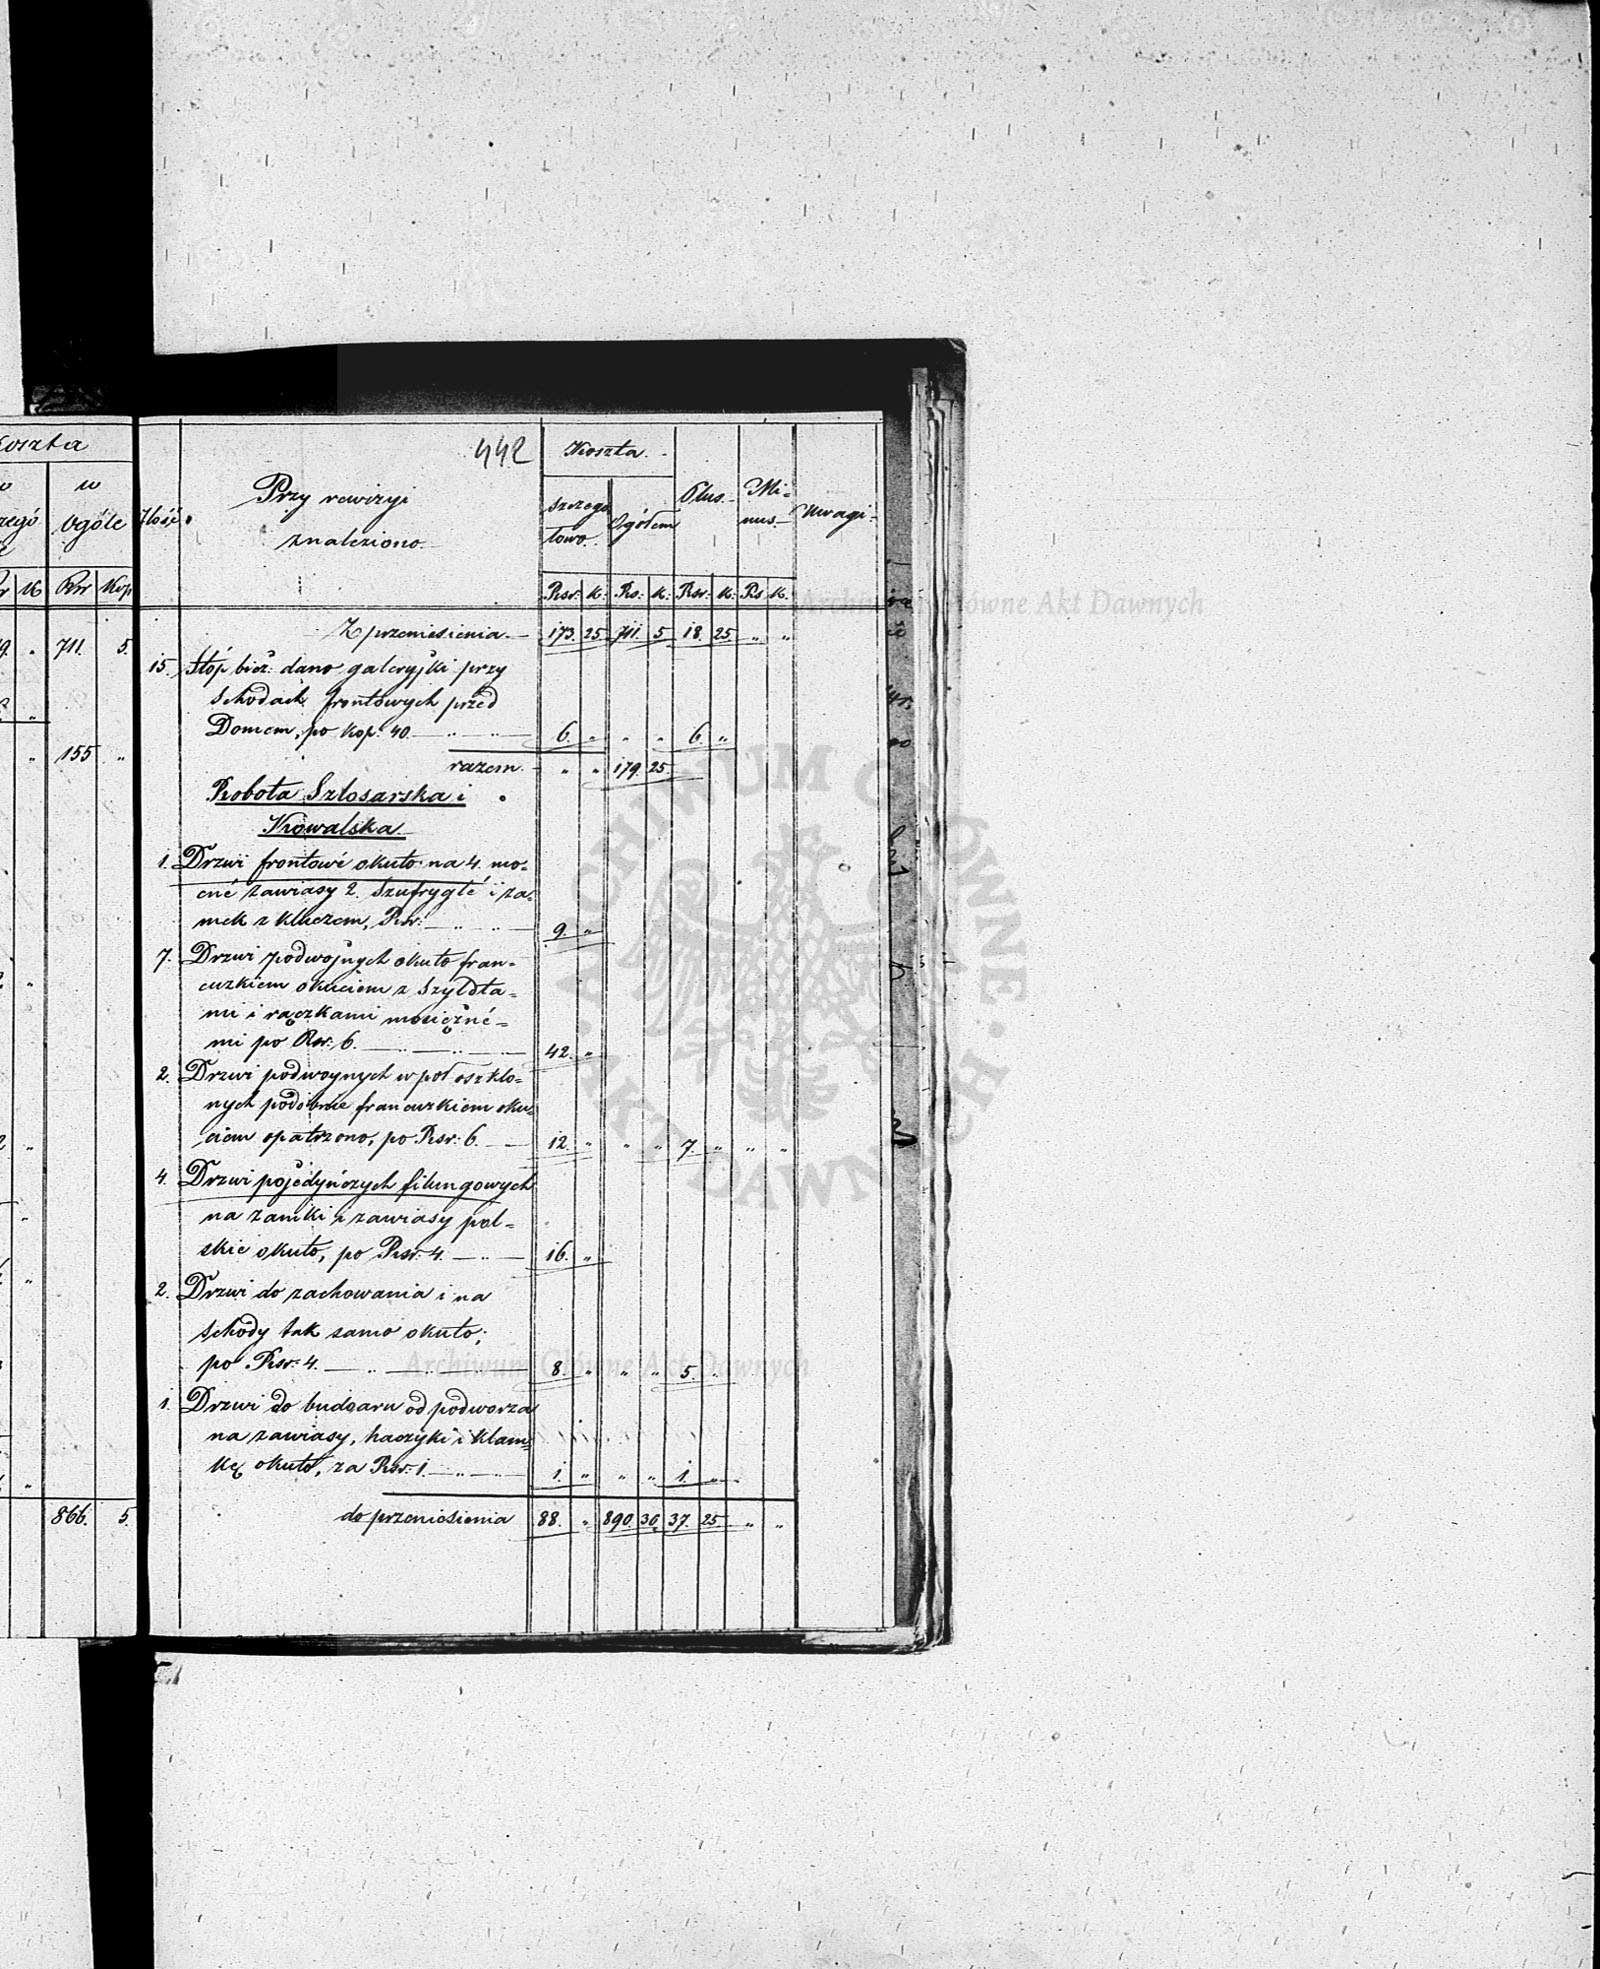 Koszta
w
ogóle
K
Rsr
Kop
711. 5.
155 "
866. 5.
442
Ilość.
Przy rewizyi
znaleziono.
Koszta.
szczegó
łowo.
Ogółem
Plus.
Mi=
nus.
Uwagi.
Rsr. K. Rs. K. Rsr. K. Rs K.
Z przeniesienia. 173. 25. 711. 5. 18. 25. " "
15. Stóp bież: dano galeryjki przy
schodach frontowych przed
Domem, po kop: 40. 6. " " " 6. "
razem. " " 179. 25.
Robota Szlosarska i
Kowalska
1. Drzwi frontowe okuto na 4. mo=
cné zawiasy 2. Szufryglé i za=
mek z kluczem, Rsr: 9. "
7. Drzwi podwojnych okuto fran=
cuzkiem okuciem z Szyldta=
mi i rączkami mosiężné=
mi po Rsr: 6. 42. "
2. Drzwi podwoynych w poł oszklo=
nych podobnie francuzkiem oku=
ciem opatrzono, po Rsr: 6. 12. " " " 7. " " "
4. Drzwi pojedyńczych filungowych
na zamki i zawiasy pol=
skie okuto, po Rsr: 4. 16. "
2. Drzwi do zachowania i na
schody tak samo okuto;
po Rsr: 4. 8. " " " 5. "
1. Drzwi do budoaru od podworza
na zawiasy, haczyki i klam=
kę okuto, za Rsr: 1. 1. " " " 1. "
do przeniesienia 88. " 890. 30. 37. 25. " "
Archiwum Główne Akt Dawnych
Archiwum Główne Akt Dawnych
ARCHIWUM GŁÓWNE AKT DAWNYCH